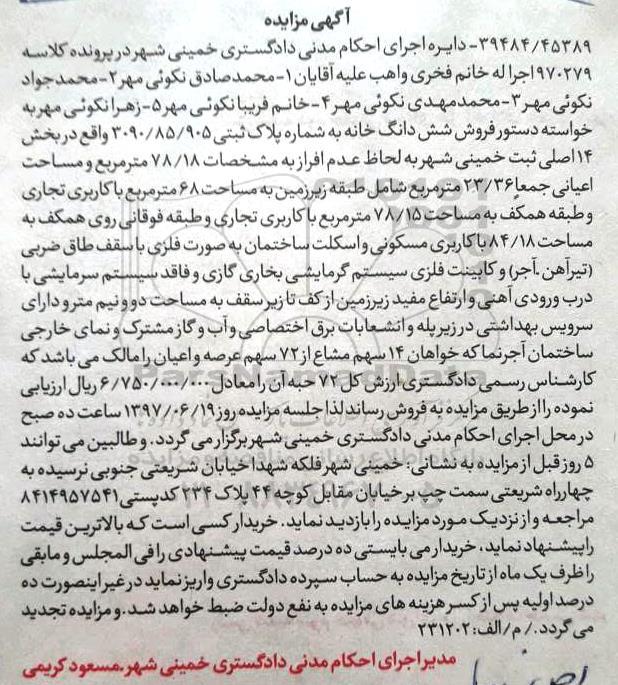 آگهی مزایده
۳۹۴۸۴/۴۵۳۸۹- دایره اجرای احکام مدنی دادگستری خمینی شهر در پرونده کلاسه
۹۷۰۲۷۹ اجرا له خانم فخری واهب علیه آقایان ۱- محمدصادق نکوئی مهر ۲- محمدجواد
نکوئی مهر ۳- محمدمهدی نکوئی مهر ۴- خانم فریبا نکوئی مهر ۵- زهرا نکوئی مهر به
خواسته دستور فروش شش دانگ خانه به شماره پلاک ثبتی ۳۰۹۰/۸۵/۹۰۵ واقع در بخش
۱۴ اصلی ثبت خمینی شهر به لحاظ عدم افراز به مشخصات ۷۸/۱۸ مترمربع و مساحت
اعیانی جمعاً ۲۳/۳۶ مترمربع شامل طبقه زیرزمین به مساحت ۶۸ مترمربع با کاربری تجاری
و طبقه همکف به مساحت ۷۸/۱۵ مترمربع با کاربری تجاری و طبقه فوقانی روی همکف به
مساحت ۸۴/۱۸ با کاربری مسکونی و اسکلت ساختمان به صورت فلزی با سقف طاق ضربی
(تیرآهن .آجر) و کابینت فلزی سیستم گرمایشی بخاری گازی و فاقد سیستم سرمایشی با
درب ورودی آهنی و ارتفاع مفید زیرزمین از کف تا زیر سقف به مساحت دو و نیم متر و دارای
سرویس بهداشتی در زیر پله و انشعابات برق اختصاصی و آب و گاز مشترک و نمای خارجی
ساختمان آجرنما که خواهان ۱۴ سهم مشاع از ۷۲ سهم عرصه و اعیان را مالک می باشد که
کارشناس رسمی دادگستری ارزش کل ۷۲ حبه آن را معادل ۶/۷۵۰/۰۰۰/۰۰۰ ریال ارزیابی
نموده را از طریق مزایده به فروش رساند لذا جلسه مزایده روز ۱۳۹۷/۰۶/۱۹ ساعت ده صبح
در محل اجرای احکام مدنی دادگستری خمینی شهر برگزار می گردد. و طالبین می توانند
۵ روز قبل از مزایده به نشانی: خمینی شهر فلکه شهدا خیابان شریعتی جنوبی نرسیده به
چهارراه شریعتی سمت چپ بر خیابان مقابل کوچه ۴۴ پلاک ۲۳۴ کدپستی ۸۴۱۴۹۵۷۵۴۱
مراجعه و از نزدیک مورد مزایده را بازدید نماید. خریدار کسی است که بالاترین قیمت
را پیشنهاد نماید، خریدار می بایستی ده درصد قیمت پیشنهادی را فی المجلس و مابقی
را ظرف یک ماه از تاریخ مزایده به حساب سپرده دادگستری واریز نماید در غیر اینصورت ده
درصد اولیه پس از کسر هزینه های مزایده به نفع دولت ضبط خواهد شد. و مزایده تجدید
می گردد./ م/الف: ۲۳۱۲۰۲
مدیر اجرای احکام مدنی دادگستری خمینی شهر.مسعود کریمی